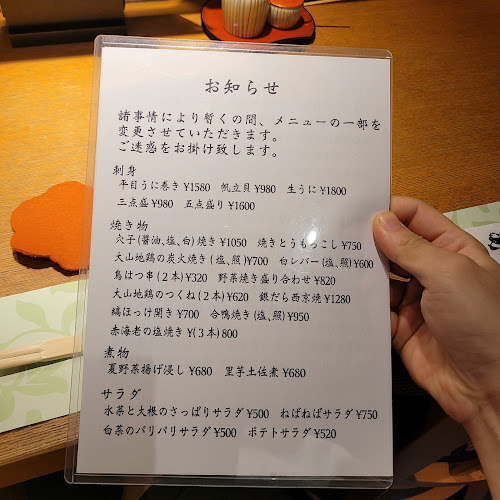 お知らせ
諸事情により暫くの間、メニューの一部を
変更させていただきます。
ご迷惑をお掛け致します。
刺身
平目うに巻き ¥1580 帆立貝 ¥980 生うに ¥1800
三点盛 ¥980 五点盛り ¥1600
焼き物
穴子(醤油、塩、白)焼き ¥1050 焼きとうもろこし ¥750
大山地鶏の炭火焼き(塩、照)¥700 白レバー(塩、照)¥600
鳥はつ串(2本)¥320 野菜焼き盛り合わせ ¥820
大山地鶏のつくね(2本)¥620 銀だら西京焼 ¥1280
縞ほっけ開き ¥700 合鴨焼き(塩、照)¥950
赤海老の塩焼き ¥(3本)800
煮物
夏野菜揚げ浸し ¥680 里芋土佐煮 ¥680
サラダ
水菜と大根のさっぱりサラダ ¥500 ねばねばサラダ ¥750
白菜のパリパリサラダ ¥500 ポテトサラダ ¥520